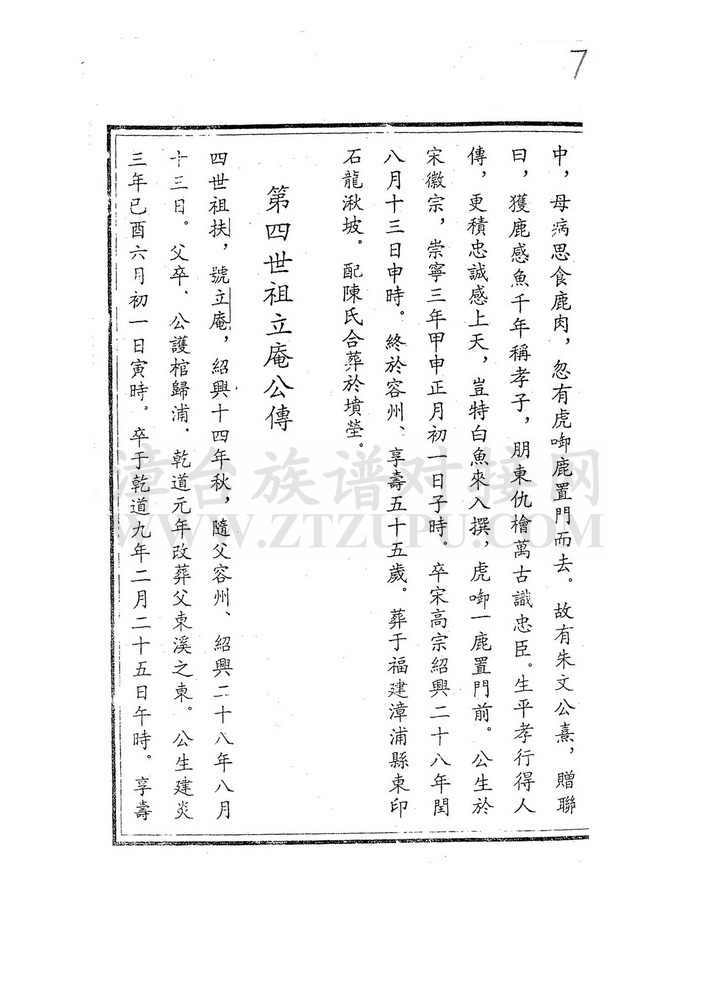 7
中，母病思食鹿肉，忽有虎啣鹿置門而去。故有朱文公熹，贈聯
曰，獲鹿感魚千年稱孝子，朋東仇檜萬古識忠臣。生平孝行得人
傳，更積忠誠感上天，豈特白魚來入撰，虎啣一鹿置門前。公生於
宋徽宗，崇寧三年甲申正月初一日子時。卒宋高宗紹興二十八年閏
八月十三日申時。終於容州、享壽五十五歲。葬于福建漳浦縣東印
石龍湫坡。配陳氏合葬於墳塋。
第四世祖立庵公傳
四世祖扶，號立庵，紹興十四年秋，隨父容州、紹興二十八年八月
十三日。父卒、公護棺歸浦．乾道元年改葬父東溪之東。公生建炎
三年己酉六月初一日寅時。卒于乾道九年二月二十五日午時。享壽
漳台族谱对接网
WWW.ZTZUPU.COM